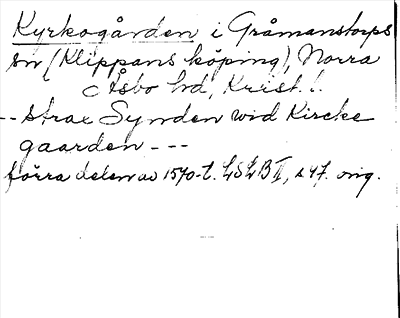 Kyrkogården i Gråmanstorps
sn (Klippans köping), Norra
Åsbo hd, Krist. l.
-- strax Synden wid Kircke
gaarden ---
förra delen av 1570-t. LSLB II, s 47. orig.